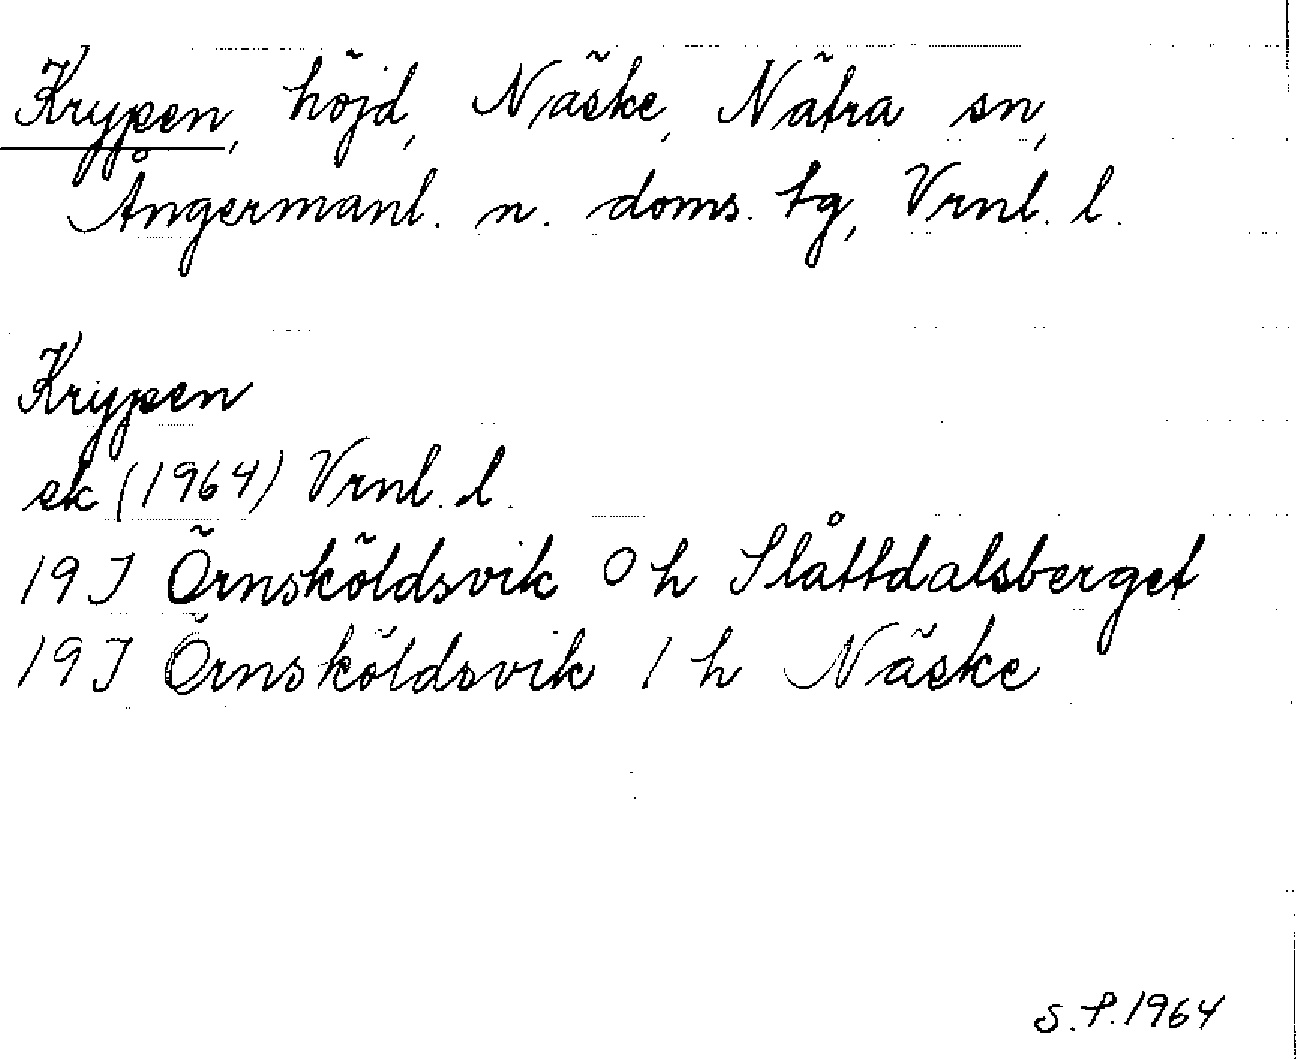 Krypen, höjd, Näske, Nätra sn,
Ångermanl. n. doms. tg, Vrnl. l.
Krypen
ek (1964) Vrnl. l.
19 J Örnsköldsvik 0 h Slåttdalsberget
19 J Örnsköldsvik 1 h Näske
S.P. 1964